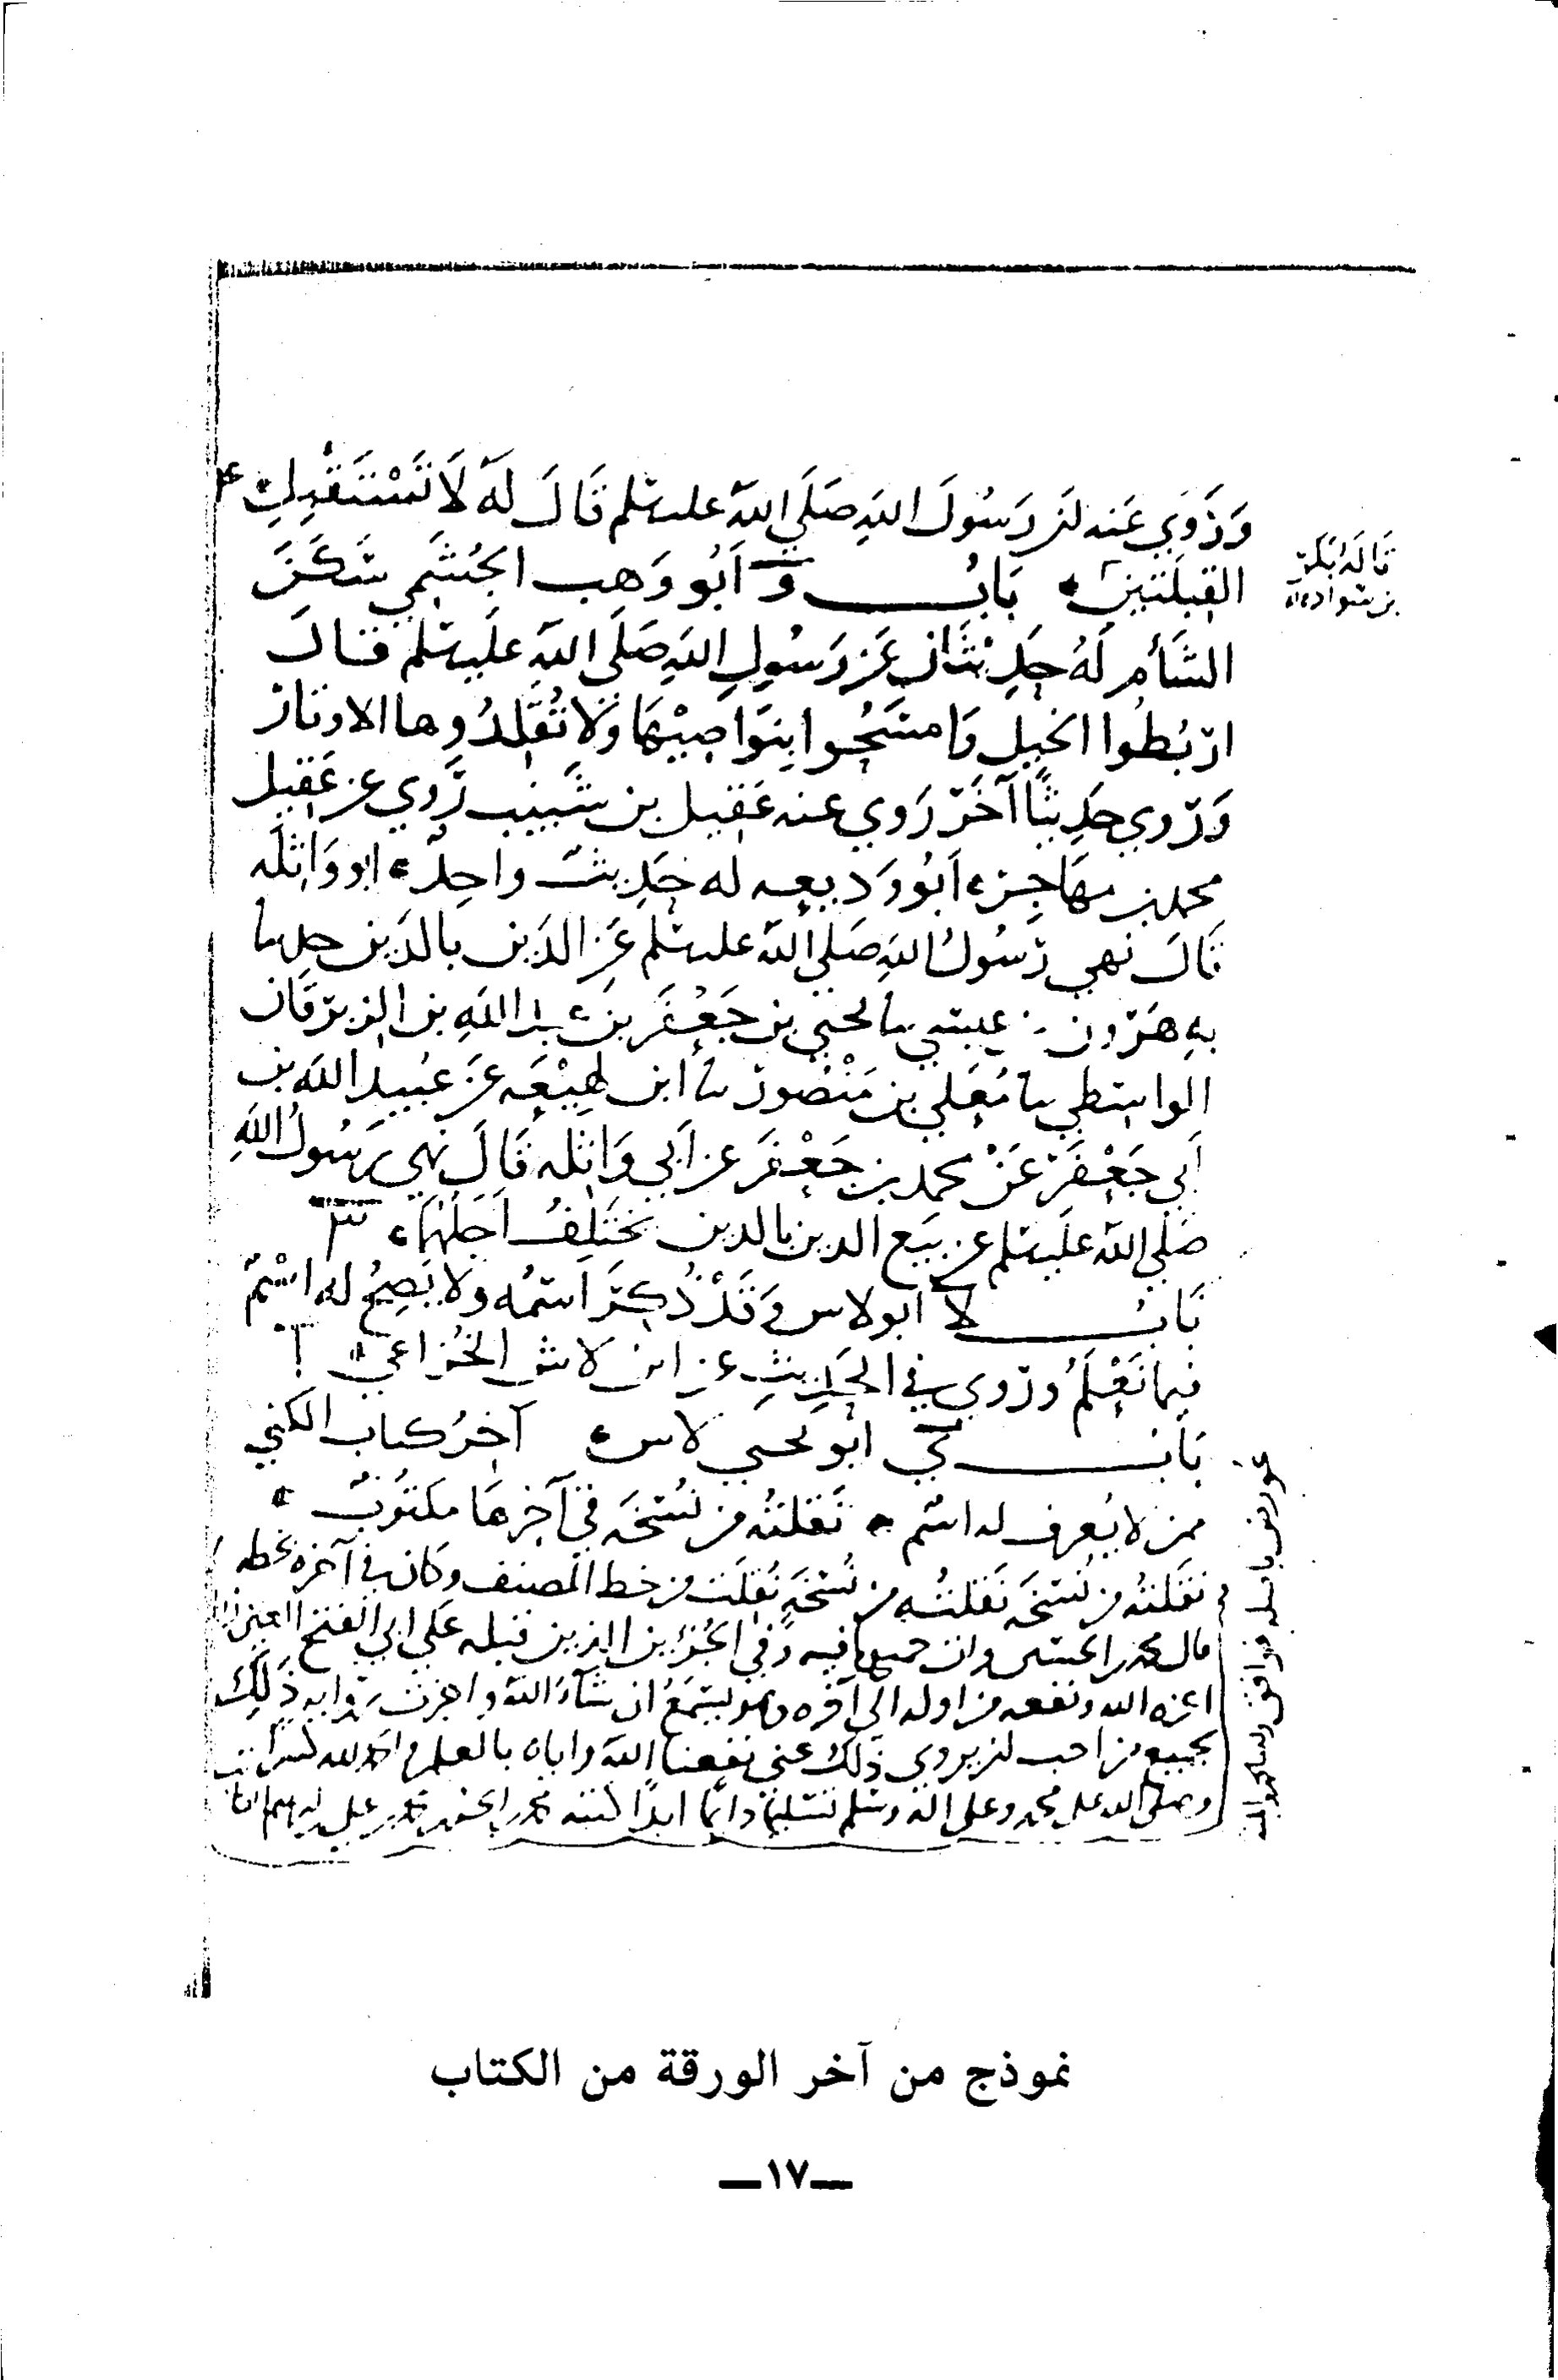 وَرُوِي عَنه ان رَسُولَ اللهِ صَلَى اللهُ عليه سلم قَالَ لَهُ لَا تَسْتَقْبِلِ
قَالَه بَكر
بن سَوادة
القِبلَتَينِ بَابُ وَ أَبُو وَهب الجُشَمي سَكَنَ
الشَأم لَهُ حَدِيثَان عَن رَسُولِ اللهِ صَلَى اللهُ عَلَيه سلم قال
ارتبُطُوا الخيل وَامسَحُوا بِنَوَاصِيْهَا وَلَا تُقَلِدُوها الاوتار
وَرَوي حَدِيثًا آخَر رَوي عنه عَقِيل بن شَبِيب رَوي عن عَقِيل
محمد بن مهَاجِر أبُو وَديعه له حَدِيث واحِد ابو وَاثِلَه
قَالَ نَهي رَسُولُ اللهِ صَلى اللهُ عليه سلم عَن الدَين بالدَين حدثنا
بِه هَرون بن عيسي نا يحيي بن جَعْفَر بن عَبد اللهِ بن الزبرقَان
الواسطي نا مُعَلي بن مَنْصُور نا ابن لَهِيْعَه عَن عُبيد الله بن
أبي جَعْفَر عَنْ محمد بن جَعْفَر عن أبي وَاثِله قَالَ نهى رَسُولُ اللهِ
صَلى الله عَليه سلم عن بَيع الدين بالدين تختَلِفُ اجَلهُمَا
بَابُ لا ابو لاس وَقَدْ ذُكِرَ اسمُه ولا يَصِحُ له اسْمٌ
فيما نَعْلَمُ ورُوي في الحَدِيثِ عن ابن لاس الخُزاعي
بَابُ ي ابو يحيي لاس آخِرُ كتاب الكُني
ممن لا يُعرف له اسم نَقلتُه من نُسخَه في آخِرهَا مكتوب
نقَلتُه من نُسخَه نَقَلتُه من نُسخَةٍ نُقلَت من خط المصنف وَكان في آخره بخطه
قال محمد بن الحسين وان جميع ما فيه وَفي الجُزئين الذين قبله عَلي ابي الفتح
اعزه الله ونفعه من اوله الي آخره وهو يسمَعُ ان شآءَ اللهُ واجزت رَوايه ذَلِكَ
لجميع من احب ان يروي ذَلك عَني نفعنا اللهُ واياه بالعلم والحمد لله كثيرا
وصلى الله على محمد وعلى اله وسلم تسليما دائمًا ابدًا كتبه محمد بن الحسين
نموذج من آخر الورقة من الكتاب
—١٧—